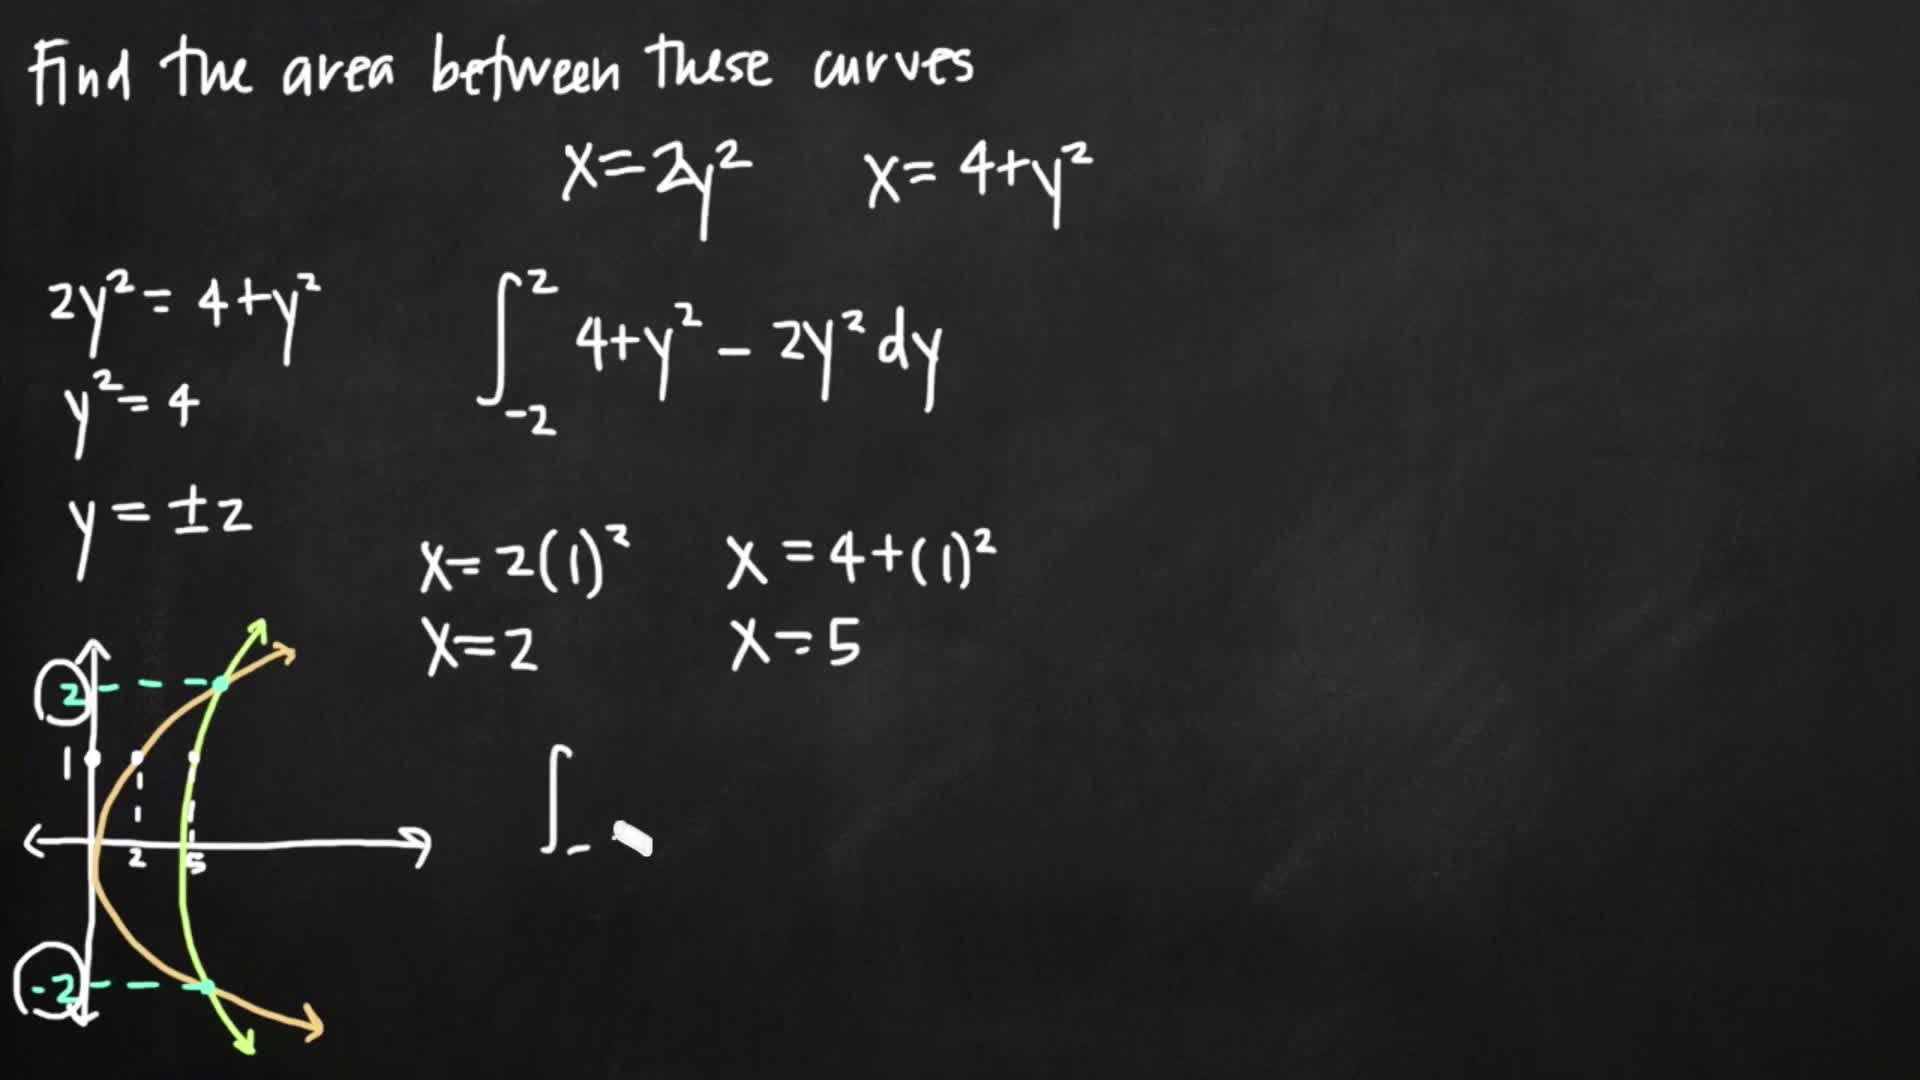 Find the area between these curves
x=2y² x=4+y²
2y²=4+y²
∫₋₂² 4+y²-2y²dy
y²=4
y=±2
x=2(1)² x=4+(1)²
x=2 x=5
2
1
2 5
-2
∫₋